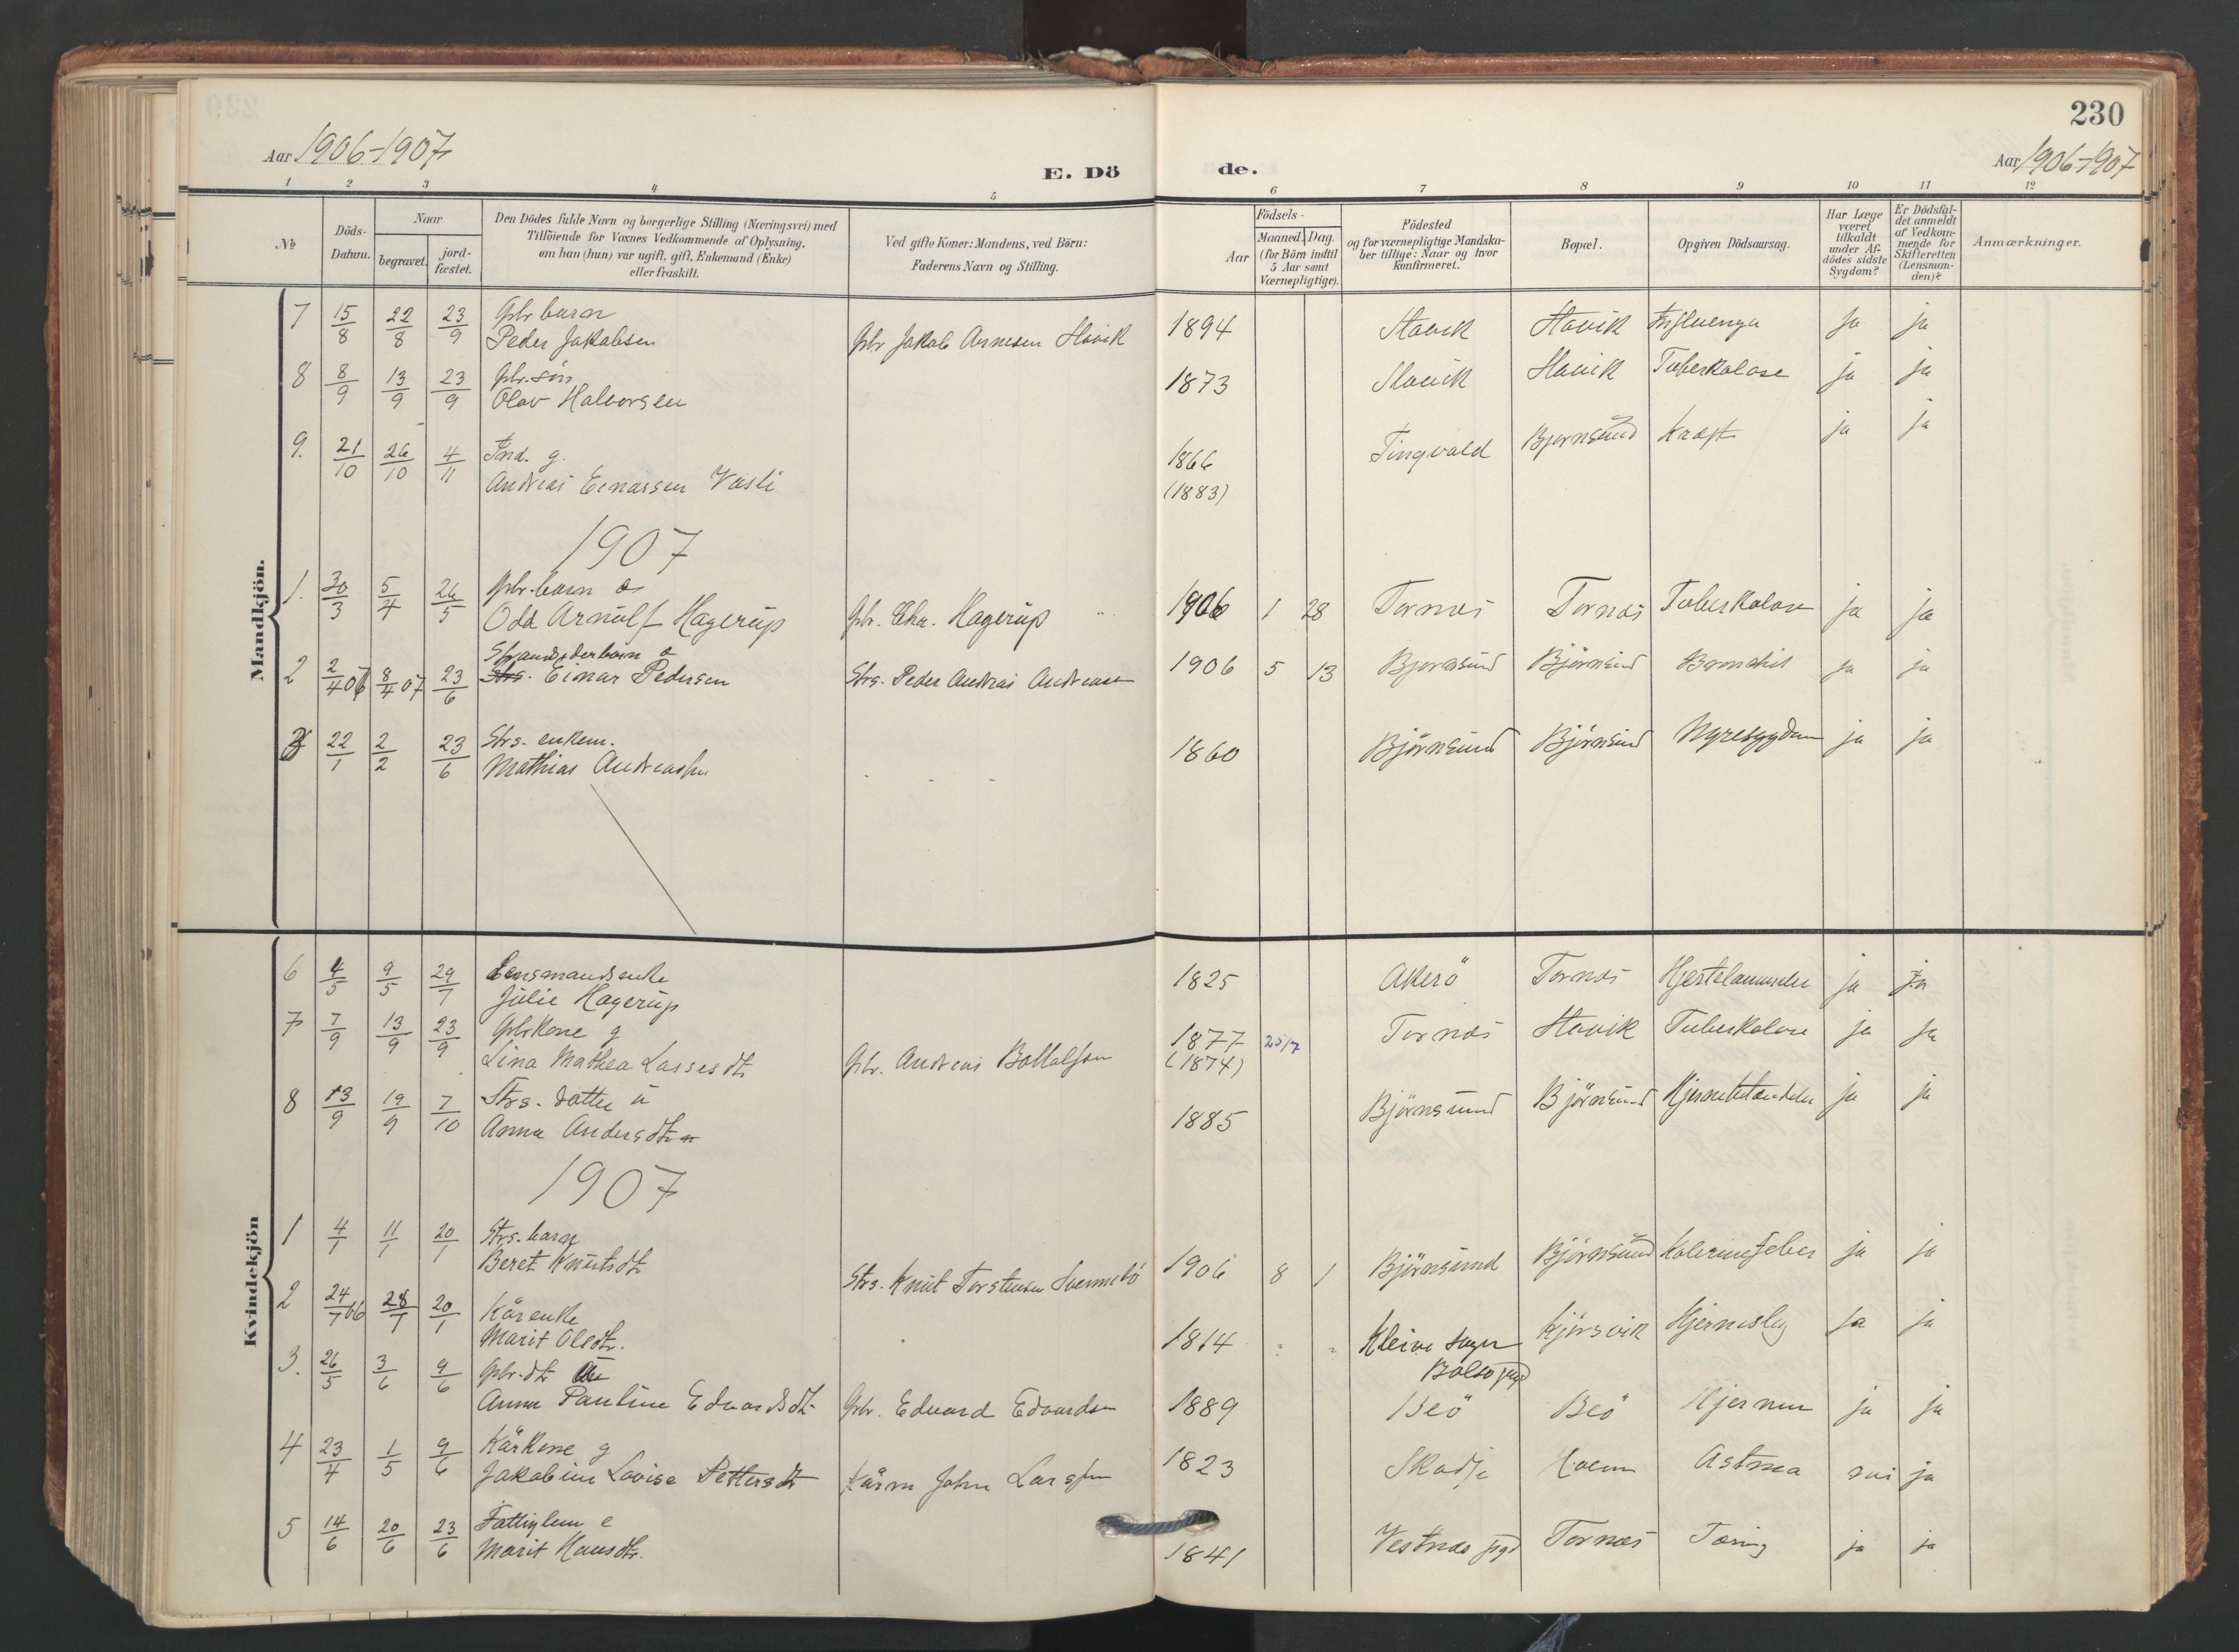 230
Aar 1906-1907
E. Dö de.
Aar 1906-1907
1 2 3 4 5 6 7 8 9 10 11 12
No
Döds-Datum.
Naar
begravet.
jord-fæstet.
Den Dödes fulde Navn og borgerlige Stilling (Næringsvei) med
Tilföiende for Voxnes Vedkommende af Oplysning,
om han (hun) var ugift, gift, Enkemand (Enke)
eller fraskilt.
Ved gifte Koner: Mandens, ved Börn:
Faderens Navn og Stilling.
Födsels-
Aar
Maaned. Dag.
(for Börn indtil
5 Aar samt
Værnepligtige).
Födested
og for værnepligtige Mandska-
ber tillige: Naar og hvor
konfirmeret.
Bopæl.
Opgiven Dödsaarsag.
Har Læge
været
tilkaldt
under Af-
dödes sidste
Sygdom?
Er Dödsfal-
det anmeldt
af Vedkom-
mende for
Skifteretten
(Lensman-
den)?
Anmærkninger.
Mandkjön.
7 15/8 22/8 23/9 Gbr barn
Peder Jakobsen Gbr Jakob Arnesen Havik 1894 Havik Havik Influenza ja ja
8 8/9 13/9 23/9 Gbr. sön
Olav Halvorsen 1873 Havik Havik Tuberkolose ja ja
9. 21/10 26/10 4/11 Ind. g.
Andreas Einarsen Vasli 1866 Tingvold Bjørnsund Kræft ja ja
(1883)
1907
1. 30/3 5/4 26/5 Gbr. barn
Odd Arnulf Hagerup Gbr. Chr. Hagerup 1906 1 28 Tornes Tornes Tuberkolose ja ja
Strandsidderbarn
2 2/4 06 8/4 07 23/6 Strs. Einar Pedersen Strs. Peder Andreas Andreas 1906 5 13 Bjørnsund Björnsund Bronchit ja ja
3 22/1 2/2 23/6 Strs. enkem.
Mathias Andreassen 1860 Björnsund Björnsund Nyresygdom ja ja
Kvindekjön
6 4/5 9/5 29/7 Lensmandsenke
Julie Hagerup 1825 Akerö Tornes Hjertelammelse ja ja
7 7/9 13/9 23/9 Gbrkone g
Lina Mathea Lassesdtr Gbr. Andreas Bottolfsen 1877 25/7 Tornes Havik Tuberkolose ja ja
(1874)
8 13/9 19/9 7/10 Strs. datter u
Anna Andersdtr 1885 Björnsund Björnsund ja ja
1907
1 4/1 11/1 20/1 Strs. barn
Beret Knutsdtr Strs. Knut Torstensen 1906 8 1 Björnsund Björnsund ja ja
2 24/7 06 28/7 20/1 Kårenke
Marit Olsdtr. 1814 " " Kleive sogn Kjörsvik Hjerneslag ja ja
Bolsö pgd
3. 26/5 3/6 9/6 Gbr. dtr
Anna Pauline Edvardsdtr. Gbr. Edvard Edvardsen 1889 Beö Beö ja ja
4 23/4 1/5 9/6 Kårkone g
Jakobine Lovise Pettersdtr Kårm John Larssen 1823 Skodje Hoem Astma nei ja
5 14/6 20/6 23/6 Fattiglem e
Marit Hansdtr. 1841 Vestnes pgd Tornes Tæring ja ja